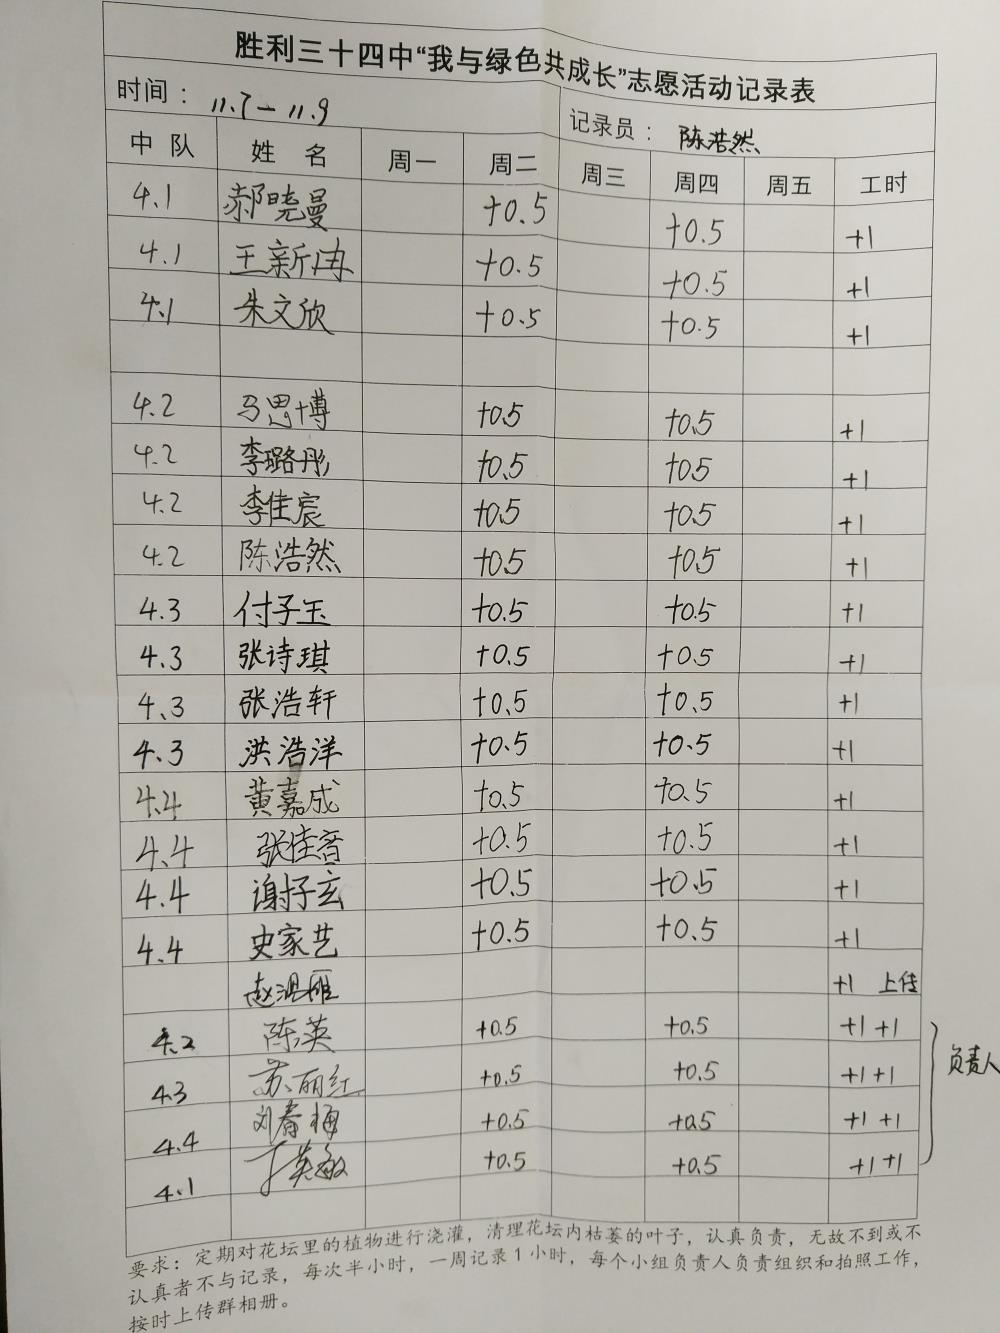 胜利三十四中“我与绿色共成长”志愿活动记录表
时间： 11.7—11.9 记录员： 陈浩然
中队 姓名 周一 周二 周三 周四 周五 工时
4.1 郝晓曼 +0.5 +0.5 +1
4.1 王新冉 +0.5 +0.5 +1
4.1 朱文欣 +0.5 +0.5 +1
4.2 马思博 +0.5 +0.5 +1
4.2 李璐彤 +0.5 +0.5 +1
4.2 李佳宸 +0.5 +0.5 +1
4.2 陈浩然 +0.5 +0.5 +1
4.3 付子玉 +0.5 +0.5 +1
4.3 张诗琪 +0.5 +0.5 +1
4.3 张浩轩 +0.5 +0.5 +1
4.3 洪浩洋 +0.5 +0.5 +1
4.4 黄嘉成 +0.5 +0.5 +1
4.4 张佳音 +0.5 +0.5 +1
4.4 谢子玄 +0.5 +0.5 +1
4.4 史家艺 +0.5 +0.5 +1
赵洪雁 +1 上传
4.2 陈英 +0.5 +0.5 +1 +1
4.3 苏丽红 +0.5 +0.5 +1 +1 负责人
4.4 刘春梅 +0.5 +0.5 +1 +1
4.1 于英敏 +0.5 +0.5 +1 +1
要求：定期对花坛里的植物进行浇灌，清理花坛内枯萎的叶子，认真负责，无故不到或不
认真者不与记录，每次半小时，一周记录1小时，每个小组负责人负责组织和拍照工作，
按时上传群相册。